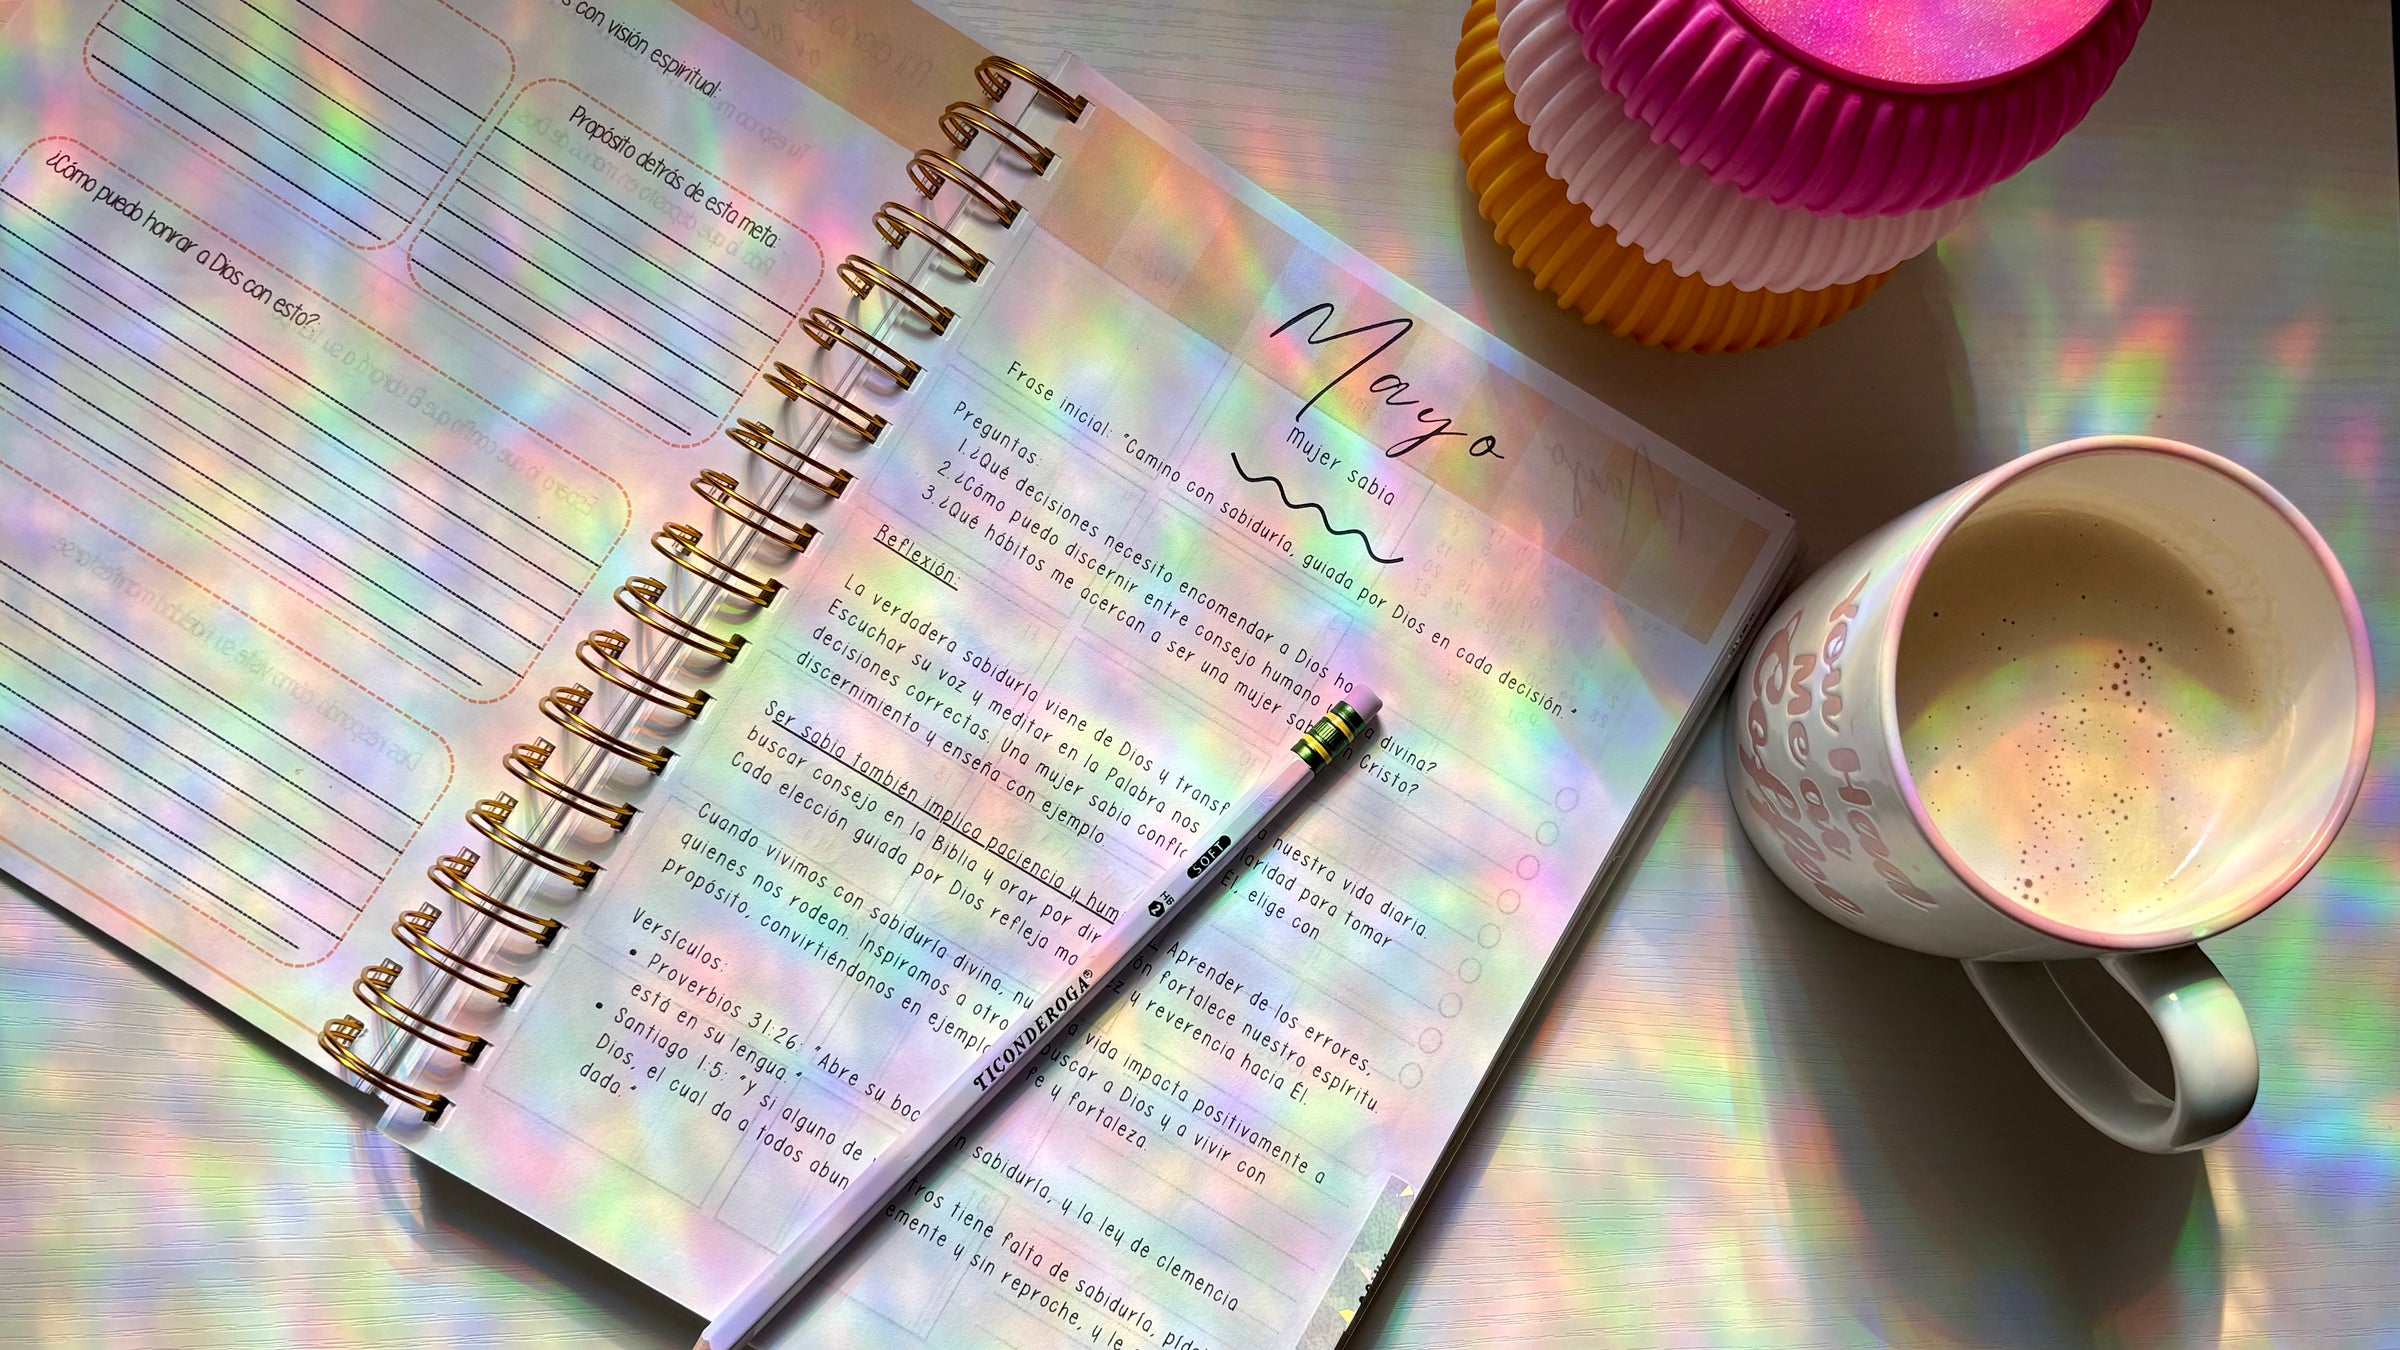 s con visión espiritual:
Propósito detrás de esta meta:
¿Cómo puedo honrar a Dios con esto?:
Mayo
Mujer sabia
Frase inicial: "Camino con sabiduría, guiada por Dios en cada decisión."
Preguntas:
1. ¿Qué decisiones necesito encomendar a Dios ho
2. ¿Cómo puedo discernir entre consejo humano y divina?
3. ¿Qué hábitos me acercan a ser una mujer sab en Cristo?
Reflexión:
La verdadera sabiduría viene de Dios y transf a nuestra vida diaria.
Escuchar su voz y meditar en la Palabra nos laridad para tomar
decisiones correctas. Una mujer sabia confí Él, elige con
discernimiento y enseña con ejemplo.
Ser sabia también implica paciencia y hum Aprender de los errores,
buscar consejo en la Biblia y orar por dir ón fortalece nuestro espíritu.
Cada elección guiada por Dios refleja ma ez y reverencia hacia Él.
Cuando vivimos con sabiduría divina, nu a vida impacta positivamente a
quienes nos rodean. Inspiramos a otro buscar a Dios y a vivir con
propósito, convirtiéndonos en ejempl fe y fortaleza.
Versículos:
• Proverbios 31:26: "Abre su boc n sabiduría, y la ley de clemencia
está en su lengua."
• Santiago 1:5: "Y si alguno de tros tiene falta de sabiduría, píd
Dios, el cual da a todos abun emente y sin reproche, y le
dada."
TICONDEROGA®
HB
2
SOFT
You Had
Me at
Coffee